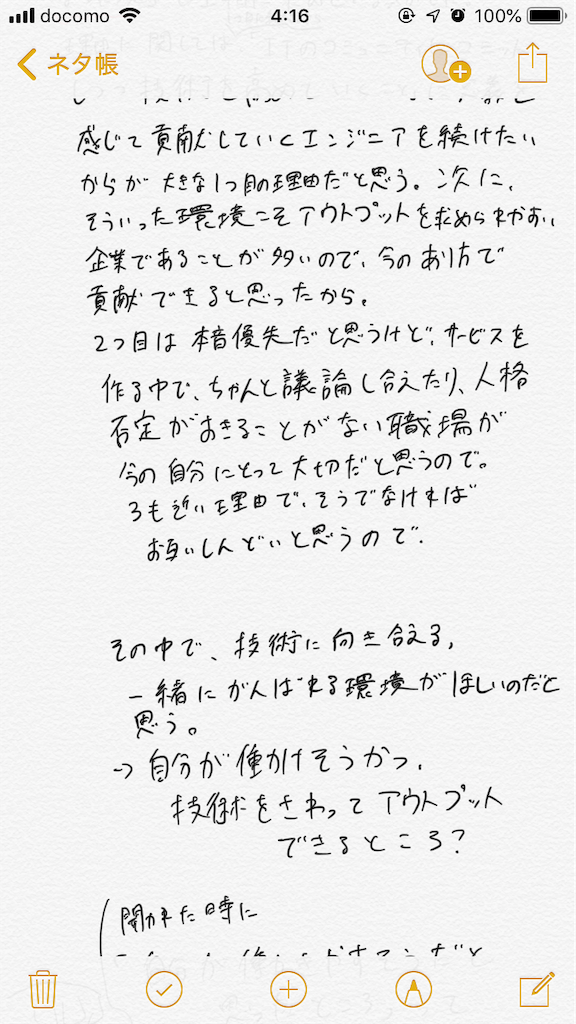 docomo 4:16 100%
ネタ帳
に関しては
感じて貢献していくエンジニアを続けたい
からが大きな1つ目の理由だと思う。次に、
そういった環境こそアウトプットを求められやすい
企業であることが多いので、今のあり方で
貢献できると思ったから。
2つ目は本音優先だと思うけど、サービスを
作る中で、ちゃんと議論し合えたり、人格
否定がおきることがない職場が
今の自分にとって大切だと思うので。
3も近い理由で、そうでなければ
お互いしんどいと思うので、
その中で、技術に向き合える、
一緒にがんばれる環境がほしいのだと
思う。
→自分が働かけそうかつ、
技術をさわってアウトプット
できるところ?
聞かれた時に